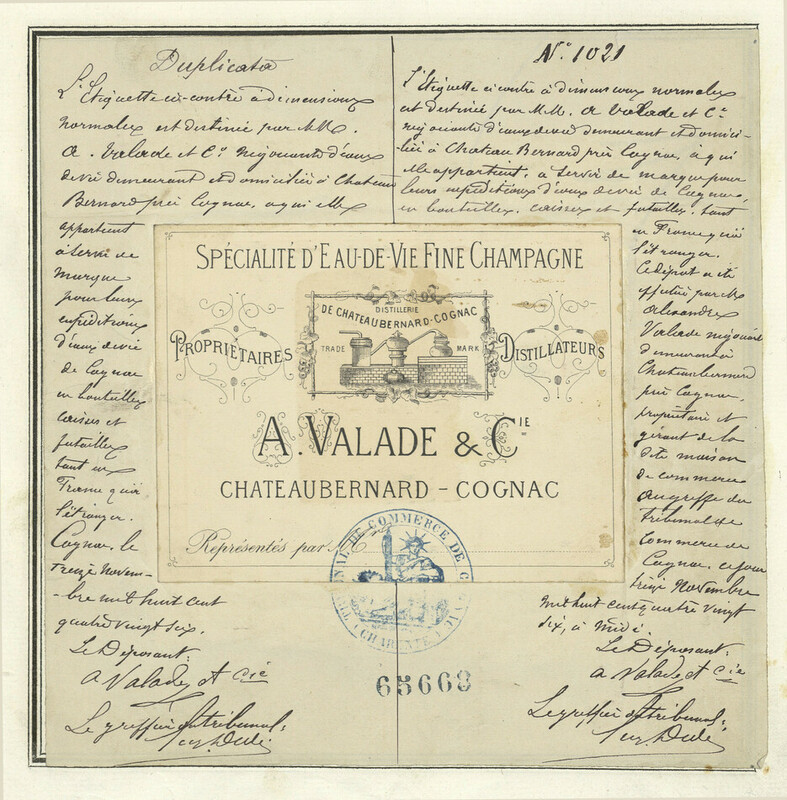 Duplicata
L'Etiquette ci-contre à dimensions
normales est destinée par MM.
A. Valade et Cie négociants d'eaux
de vie demeurant et domiciliés à Chateau
Bernard près Cognac, à qui elle
appartient
à servir de
marque
pour leurs
expéditions
d'eaux de vie
de Cognac
en bouteilles
caisses et
futailles
tant en
France qu'à
l'étranger.
Cognac, le
treize Novem-
-bre mil huit cent
quatre vingt six.
Le Déposant:
A Valade et Cie
Le greffier du tribunal:
N° 1021
L'Etiquette ci contre à dimensions normales
est destinée par M.M. A Valade et Cie
négociants d'eaux de vie demeurant et domici-
-liés à Chateau Bernard près Cognac, à qui
elle appartient, à servir de marque pour
leurs expéditions d'eaux de vie de Cognac,
en bouteilles, caisses et futailles, tant
en France qu'à
l'étranger.
Ce dépôt a été
effectué par M.
Alexandre
Valade négociant
demeurant à
Chateaubernard
près Cognac,
propriétaire et
gérant de la
dite maison
de commerce
au greffe du
tribunal de
Commerce de
Cognac, ce jour
treize Novembre
mil huit cent quatre vingt
six, à midi.
Le Déposant:
A Valade et Cie
Le greffier du tribunal:
SPÉCIALITÉ D'EAU-DE-VIE FINE CHAMPAGNE
DISTILLERIE
DE CHATEAUBERNARD-COGNAC
TRADE MARK
PROPRIÉTAIRES DISTILLATEURS
A. VALADE & CIE
CHATEAUBERNARD - COGNAC
Représentés par M
NAL DE COMMERCE DE C
(CHARENTE)
65668